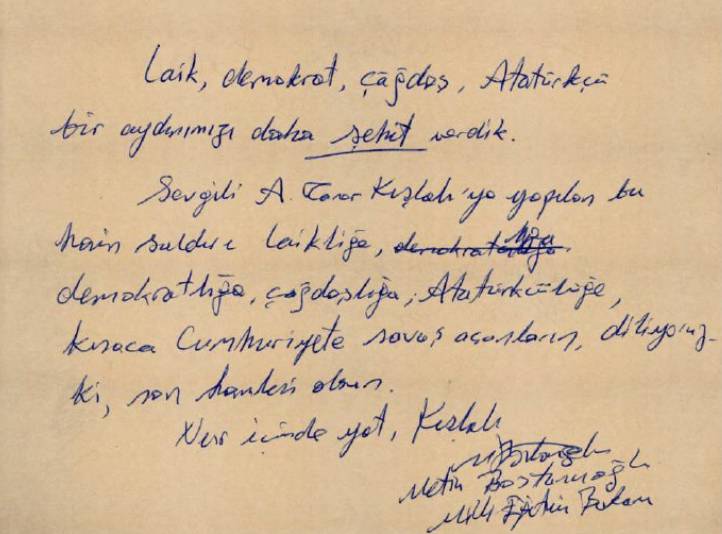 Laik, demokrat, çağdaş, Atatürkçü
bir aydınımızı daha şehit verdik.
Sevgili A. Taner Kışlalı'ya yapılan bu
hain saldırı laikliğe,
demokratlığa, çağdaşlığa, Atatürkçülüğe,
kısaca Cumhuriyete savaş açanların, diliyoruz
ki, son olsun.
Nur içinde yat, Kışlalı
Metin Bostancıoğlu
Milli Eğitim Bakanı